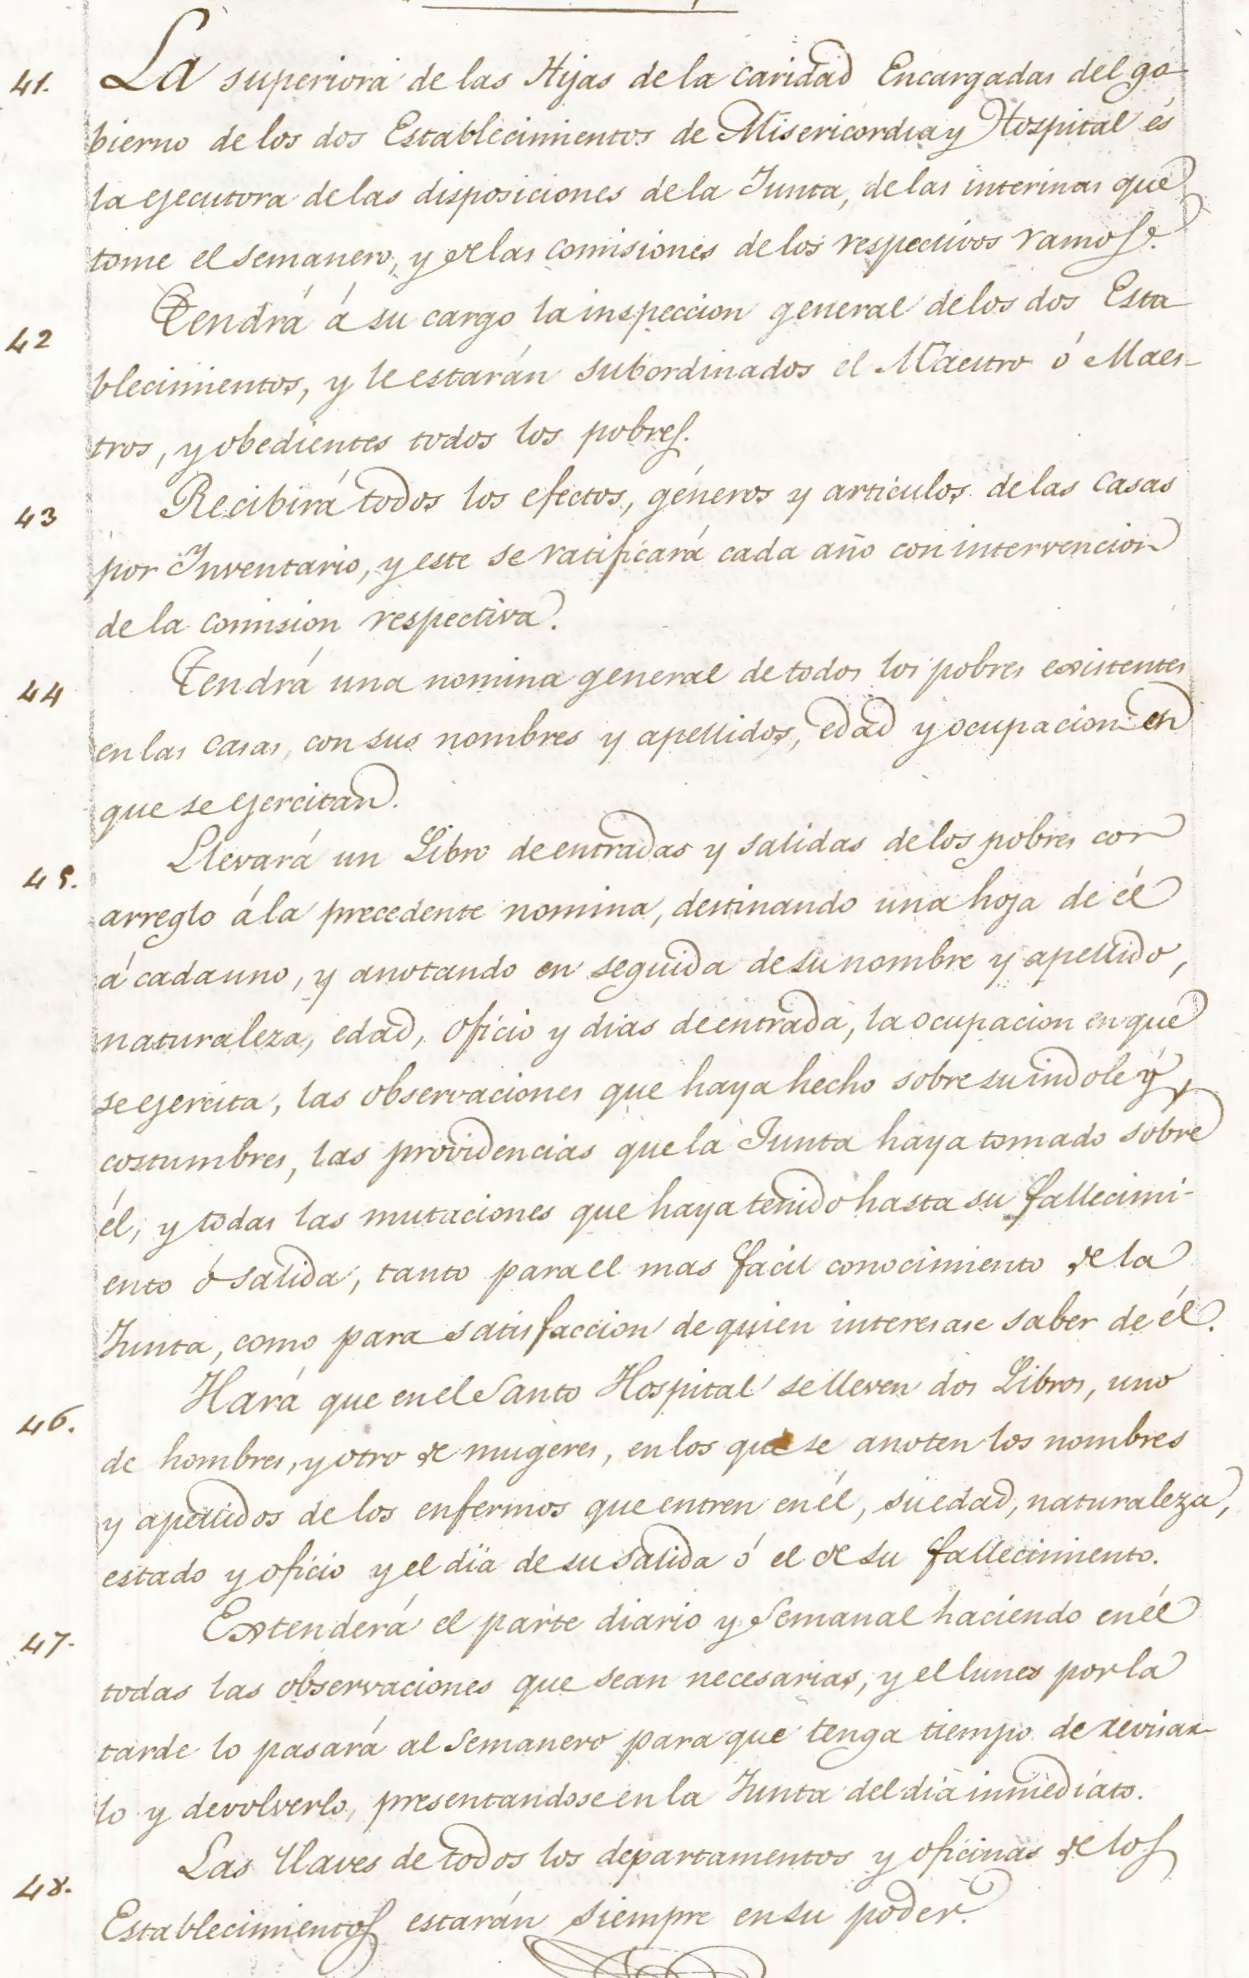 41. La superiora de las Hijas de la caridad Encargadas del go-
bierno de los dos Establecimientos de Misericordia y Hospital és
la ejecutora de las disposiciones de la Junta, de las interinas que
tome el semanero, y de las comisiones de los respectivos ramos.
42 Tendrá á su cargo la inspeccion general de los dos Esta
blecimientos, y le estarán subordinados el Maestro ó Maes-
tros, y obedientes todos los pobres.
43 Recibirá todos los efectos, géneros y articulos de las casas
por Inventario, y este se ratificará cada año con intervencion
de la comision respectiva.
44 Tendrá una nomina general de todos los pobres existentes
en las casas, con sus nombres y apellidos, edad y ocupacion en
que se ejercitan.
45. Llevará un Libro de entradas y salidas de los pobres con
arreglo á la precedente nomina, destinando una hoja de él
á cada uno, y anotando en seguida de su nombre y apellido,
naturaleza, edad, oficio y dias de entrada, la ocupacion en que
se ejercita, las observaciones que haya hecho sobre su indole y
costumbres, las providencias que la Junta haya tomado sobre
él, y todas las mutaciones que haya tenido hasta su fallecimi-
ento ó salida, tanto para el mas facil conocimiento de la
Junta, como para satisfaccion de quien interesase saber de él.
46. Hará que en el Santo Hospital se lleven dos Libros, uno
de hombres, y otro de mugeres, en los que se anoten los nombres
y apellidos de los enfermos que entren en él, su edad, naturaleza,
estado y oficio y el dia de su salida ó el de su fallecimiento.
47. Extenderá el parte diario y Semanal haciendo en él
todas las observaciones que sean necesarias, y el lunes por la
tarde lo pasará al Semanero para que tenga tiempo de revisar-
lo y devolverlo, presentandose en la Junta del dia inmediato.
48. Las llaves de todos los departamentos y oficinas de los
Establecimientos estarán siempre en su poder.